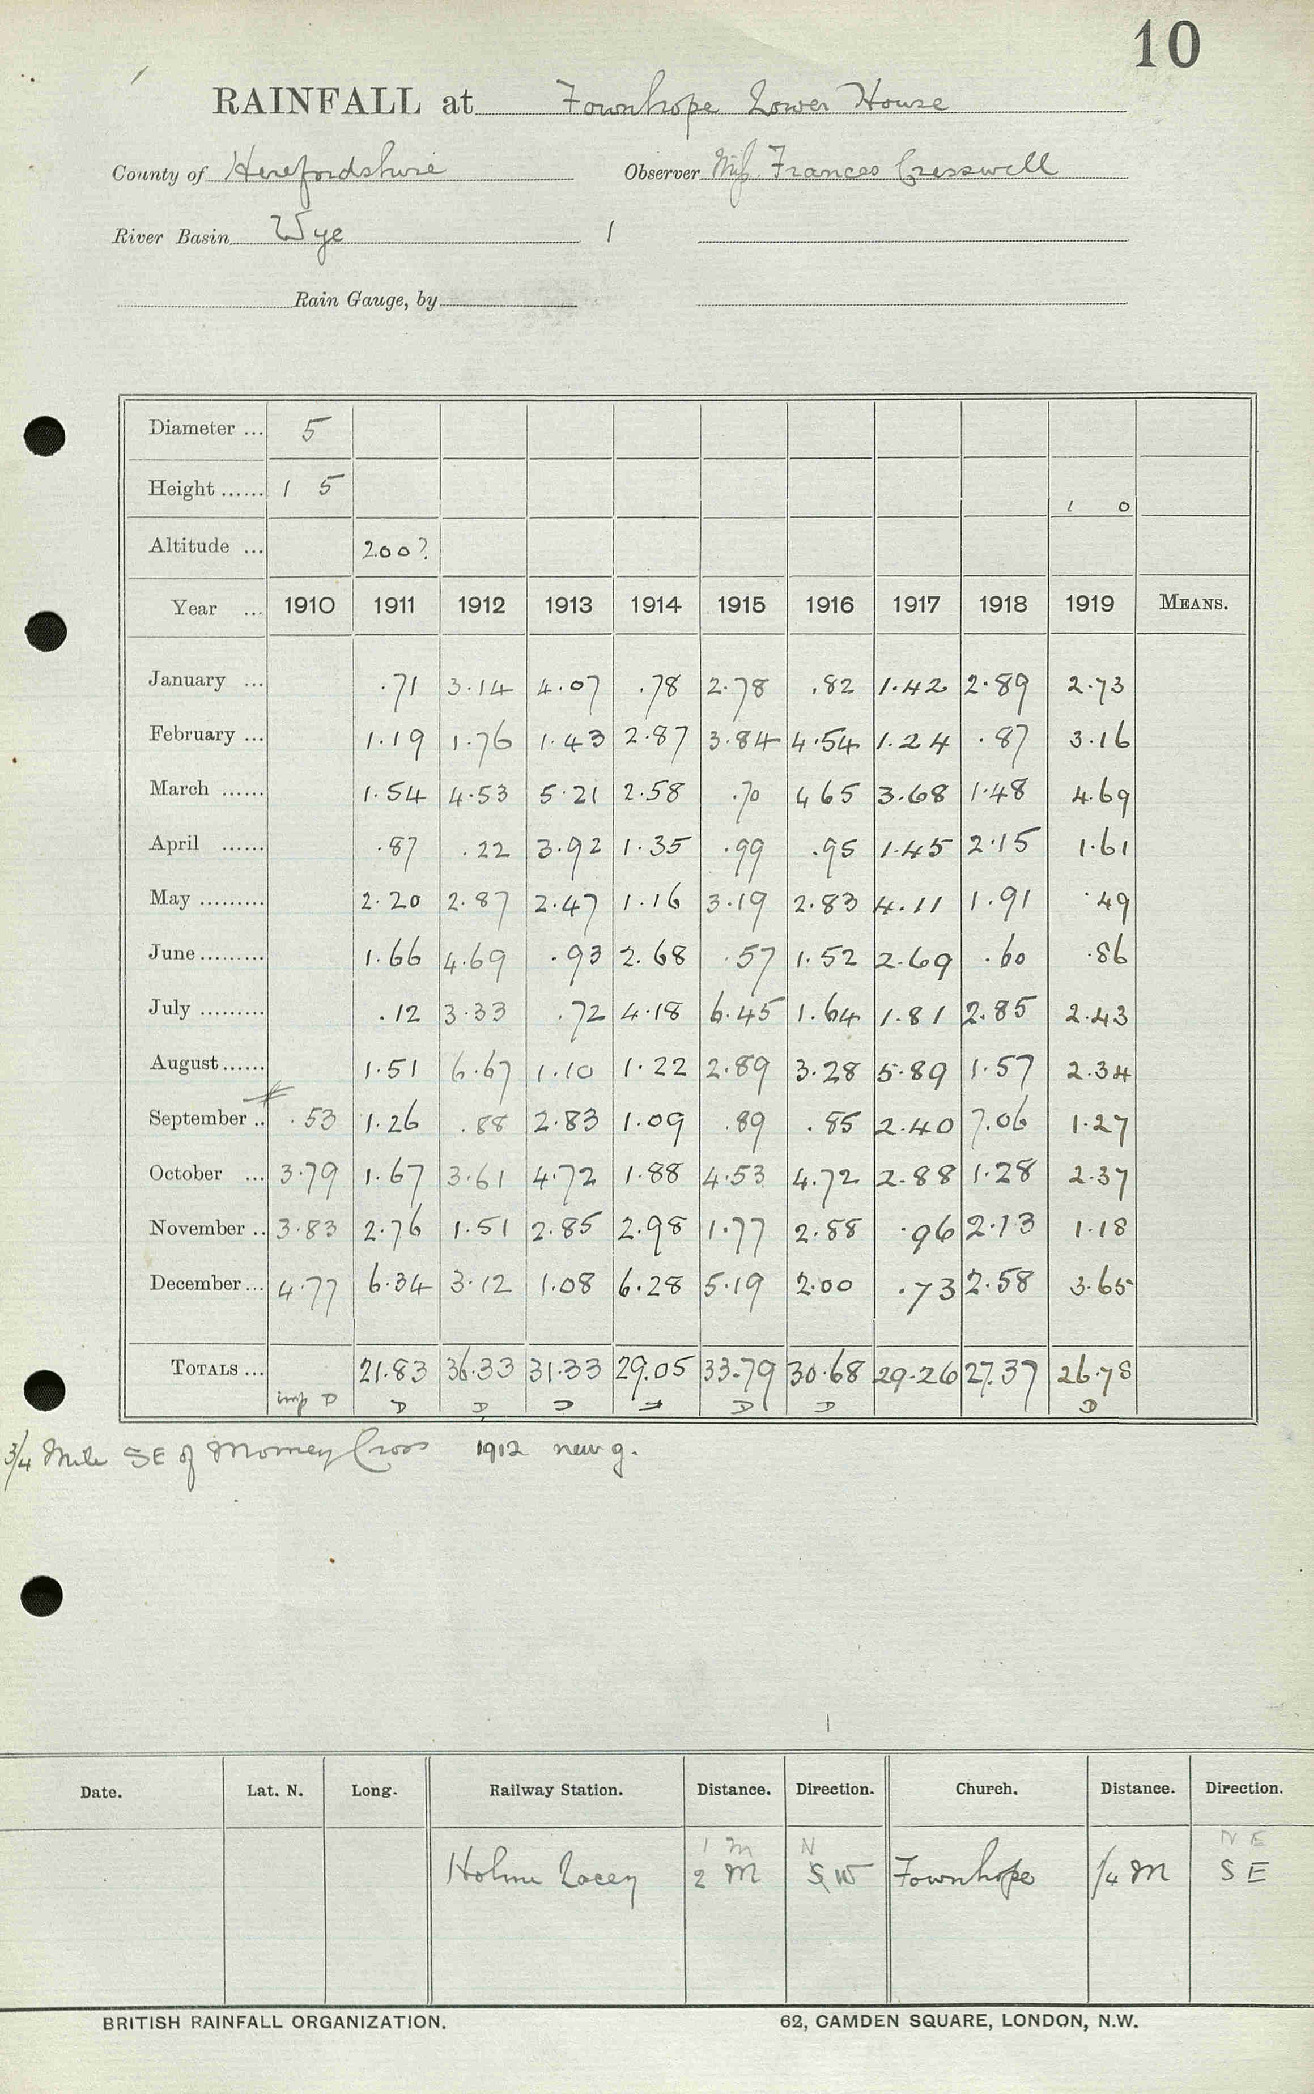 10
RAINFALL at Fownhope Lower House
County of Herefordshire Observer Miss Frances Cresswell
River Basin Wye 1
Rain Gauge, by
Diameter ... 5
Height ...... 1 5 1 0
Altitude ... 200?
Year ... 1910 1911 1912 1913 1914 1915 1916 1917 1918 1919 MEANS.
January ... .71 3.14 4.07 .78 2.78 .82 1.42 2.89 2.73
February ... 1.19 1.76 1.43 2.87 3.84 4.54 1.24 .87 3.16
March ...... 1.54 4.53 5.21 2.58 .70 4 65 3.68 1.48 4.69
April ...... .87 .22 3.92 1.35 .99 .95 1.45 2.15 1.61
May ......... 2.20 2.87 2.47 1.16 3.19 2.83 4.11 1.91 .49
June ......... 1.66 4.69 .93 2.68 .57 1.52 2.69 .60 .86
July ......... .12 3.33 .72 4.18 6.45 1.64 1.81 2.85 2.43
August ...... 1.51 6.67 1.10 1.22 2.89 3.28 5.89 1.57 2.34
September .. .53 1.26 .88 2.83 1.09 .89 .85 2.40 7.06 1.27
October ... 3.79 1.67 3.61 4.72 1.88 4.53 4.72 2.88 1.28 2.37
November .. 3.83 2.76 1.51 2.85 2.98 1.77 2.88 .96 2.13 1.18
December ... 4.77 6.34 3.12 1.08 6.28 5.19 2.00 .73 2.58 3.65
TOTALS ... 21.83 36.33 31.33 29.05 33.79 30.68 29.26 27.37 26.78
imp D D D D D D D
3/4 Mile SE of Morney Cross 1912 new g.
Date. Lat. N. Long. Railway Station. Distance. Direction. Church. Distance. Direction.
1 m N N E
Holme Lacey 2 M S W Fownhope 1/4 M S E
BRITISH RAINFALL ORGANIZATION. 62, CAMDEN SQUARE, LONDON, N.W.